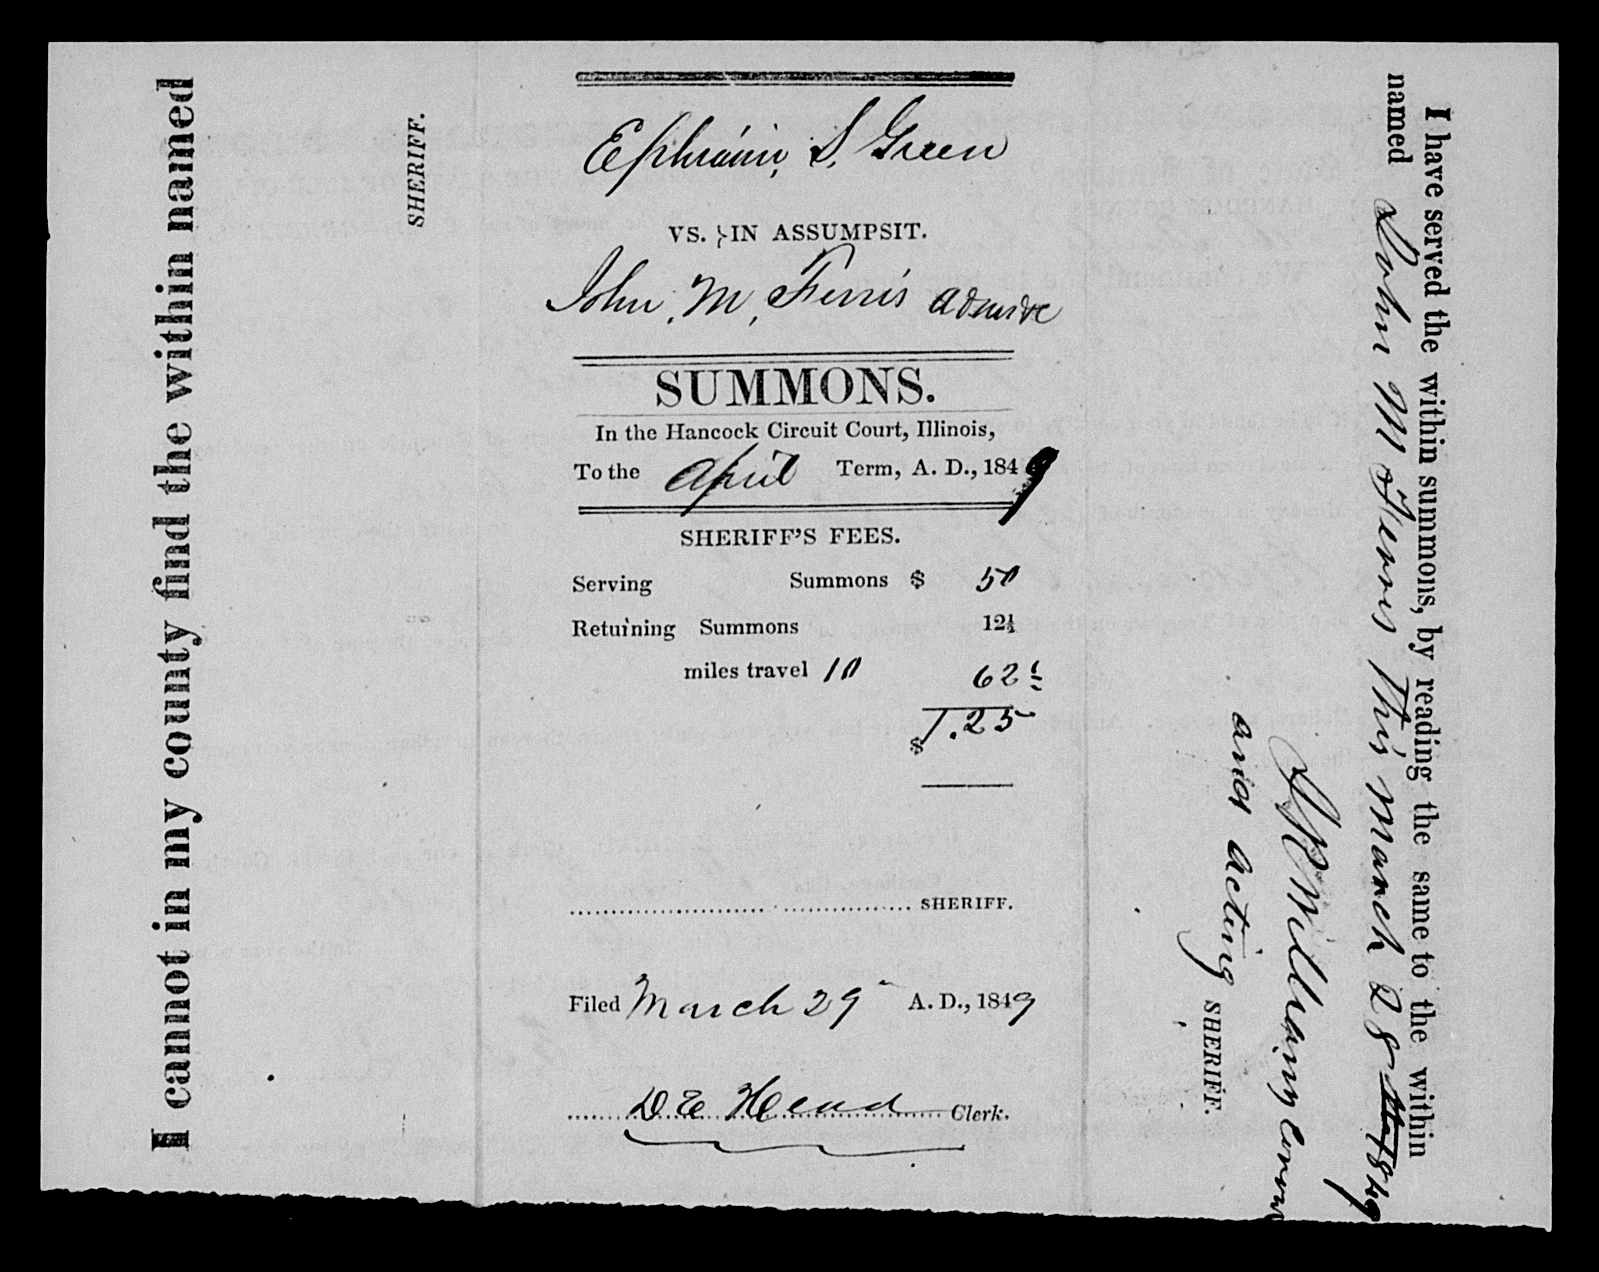 I cannot in my county find the within named
SHERIFF.
Ephraim, S. Green
VS. } IN ASSUMPSIT.
John. M, Ferris
SUMMONS.
In the Hancock Circuit Court, Illinois,
To the April Term, A. D., 1849
SHERIFF'S FEES.
Serving Summons $ 50
Returning Summons 12½
miles travel 10 62½
$ 1.25
SHERIFF.
Filed March 29 A. D., 1849
D E Head Clerk.
I have served the within summons, by reading the same to the within
named John M Ferris This March 28 1849
Williams
and acting SHERIFF.